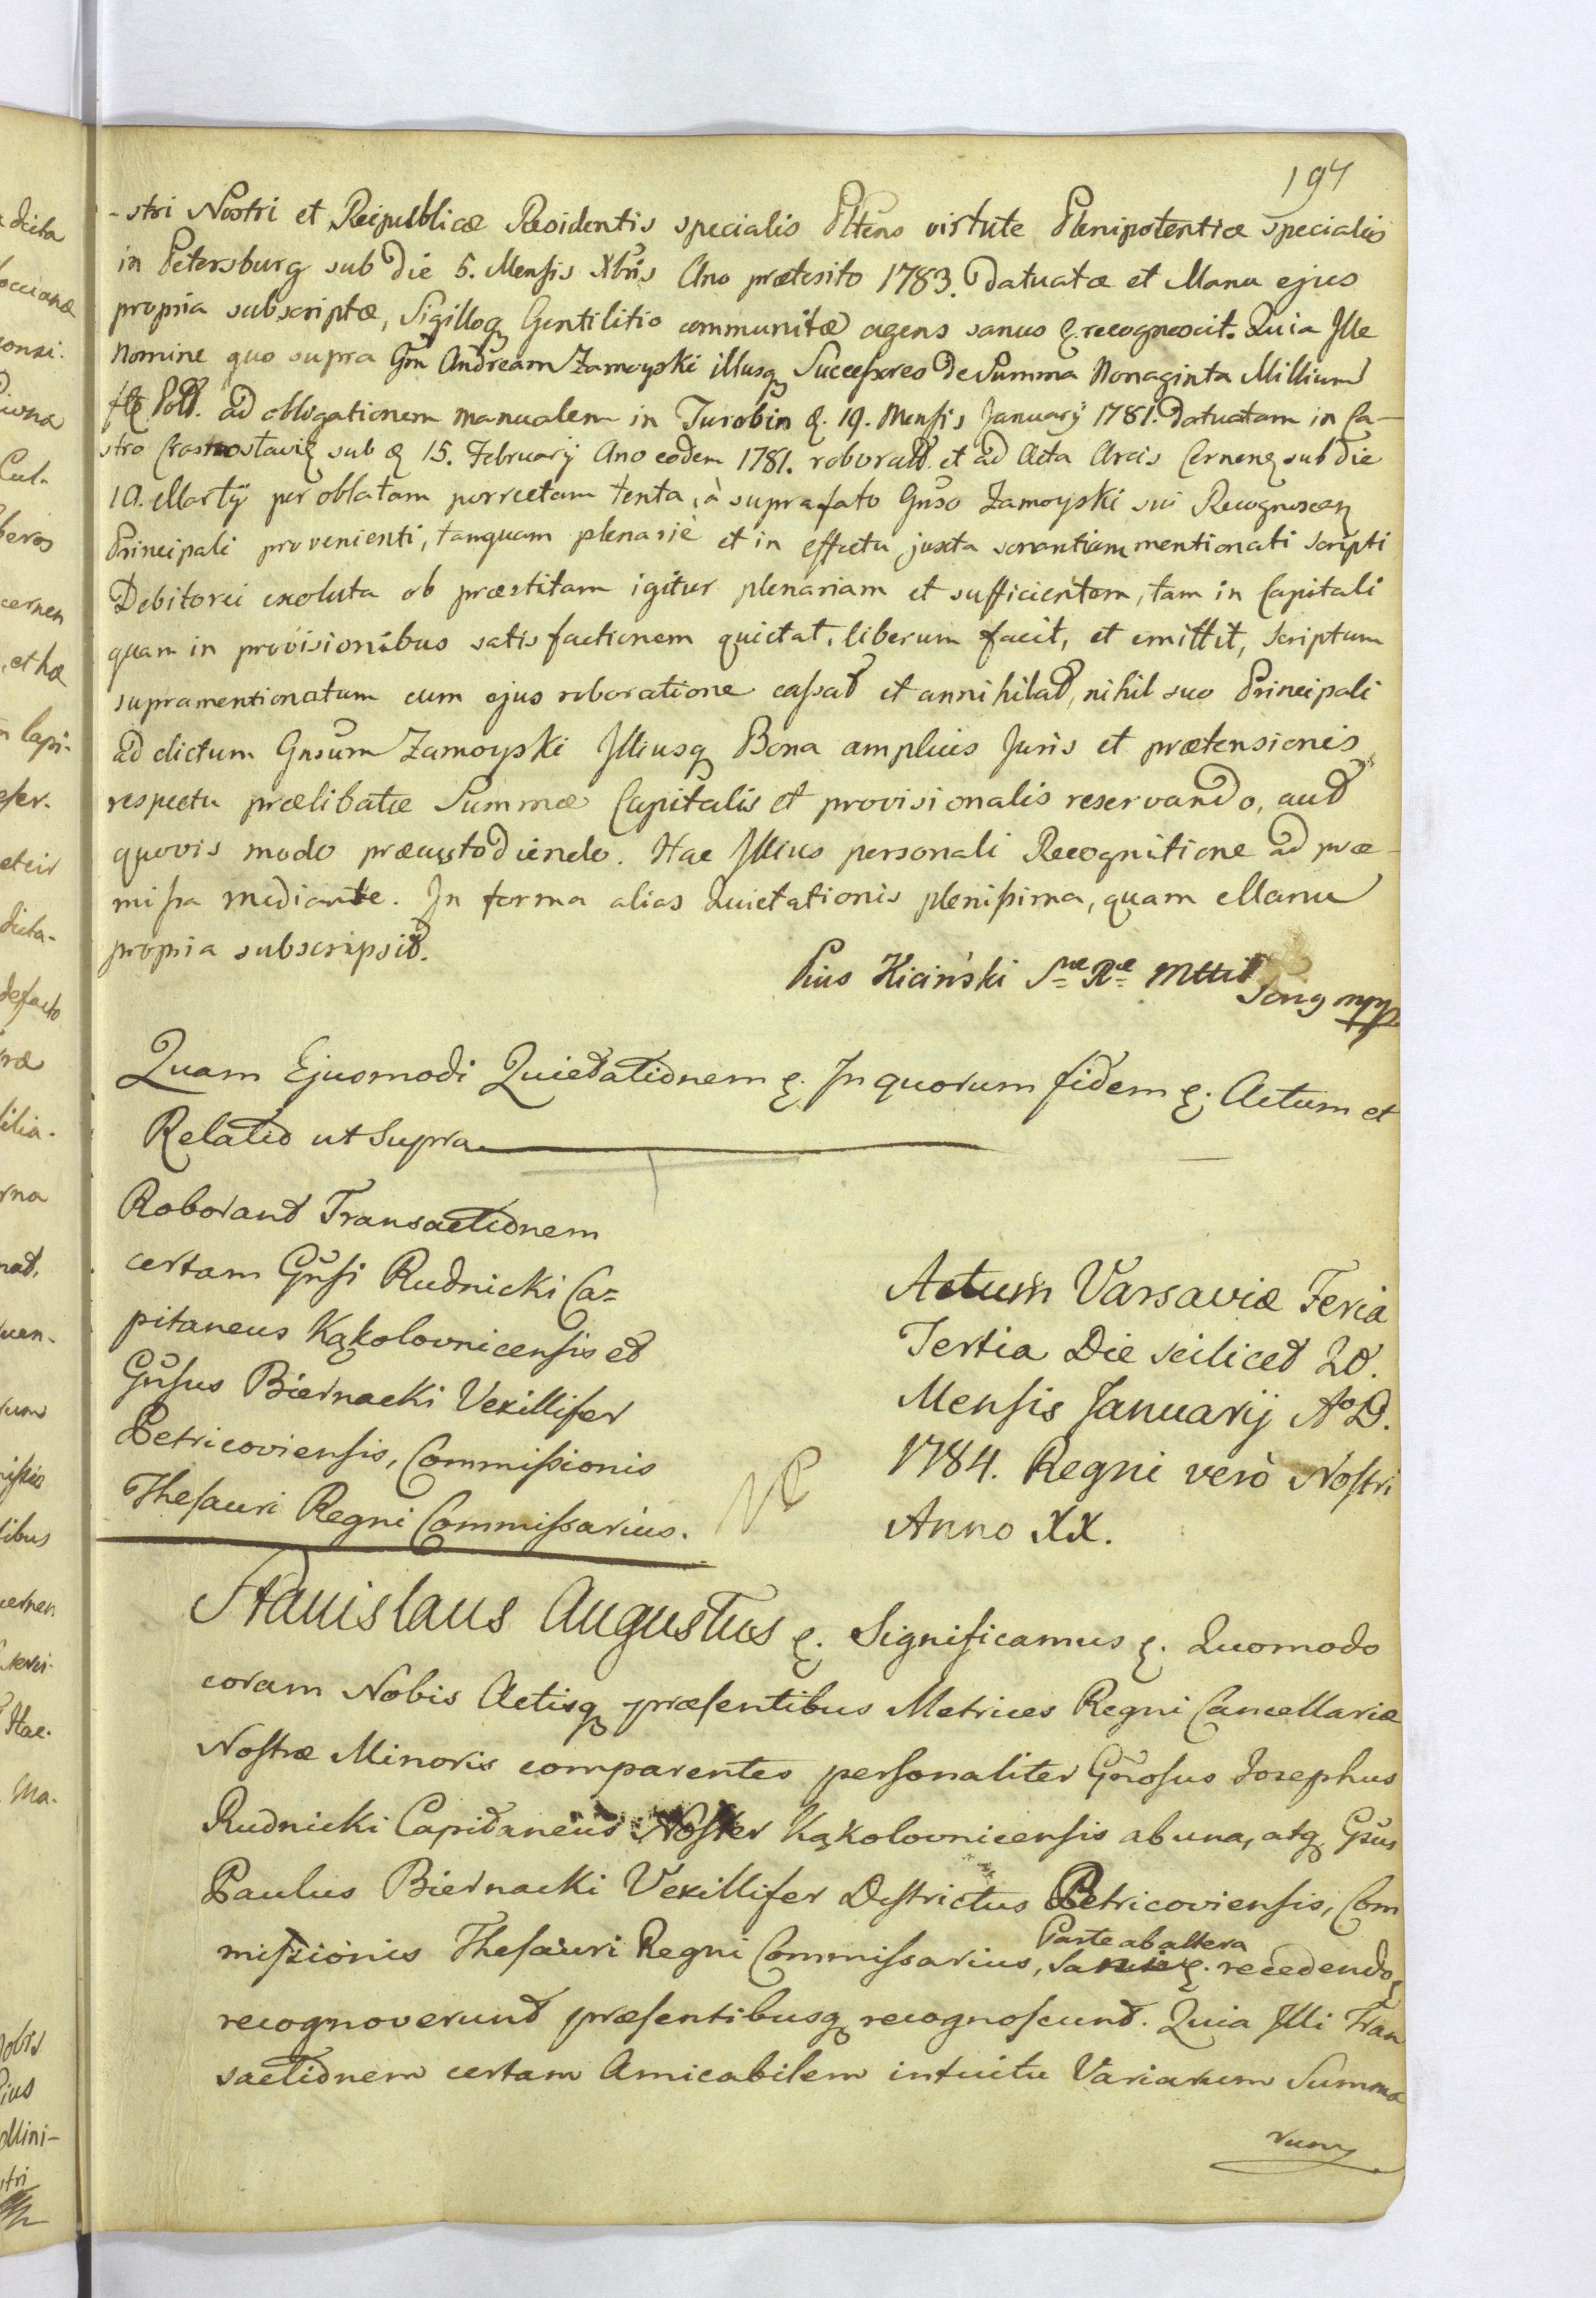 197
-stri Nostri et Reipublicæ Residentis specialis Pltens virtute Plenipotentiæ specialis
in Petersburg sub die 5. Mensis Xbris Ano præterito 1783. datuatæ et Manu ejus
propria subscriptæ, Sigilloq Gentilitio communitæ agens sanus &. recognoscit. Quia Ille
Nomine quo supra Gm Andream Zamoyski illusq Successores de Summa Nonaginta Millium
fl Poll. ad obligationem manualem in Turobin d. 19. Mensis January 1781. datuatam in Ca-
stro Crasnostavię sub d 15. February Ano eodem 1781. roborat. et ad Acta Arcis Cernenę sub die
10. Martÿ per oblatam porrectam tenta, à suprafato Gnso Zamoyski sui Recognoscen
Principali provenienti, tanquam plenariè et in effectu juxta sonantiam mentionati scripti
Debitorei exoluta ob præstitam igitur plenariam et sufficientem, tam in Capitali
quam in provisionibus satisfactionem quietat, liberum facit, et emittit, scriptum
supramentionatum cum ejus roboratione cassat et annihilat, nihil suo Principali
ad dictum Gnsum Zamoyski Illiusq Bona amplius Juris et prætensionis
respectu prælibatæ Summæ Capitalis et provisionalis reservando, aut
quovis modo præcustodiendo. Hac Illius personali Recognitione ad præ-
missa mediante. In forma alias Quietationis plenissima, quam Manu
propria subscripsit.
Pius Kiciński Sæ Ræ Mttis
mpp
Quam Ejusmodi Quietationem &. In quorum fidem &. Actum et
Relatio ut Supra
Roborant Transactionem
certam Gnsi Rudnicki Ca=
pitaneus Kąkolovnicensis et
Gnsus Biernacki Vexillifer
Petricoviensis, Commissionis
Thesauri Regni Commissarius.
Actum Varsaviæ Feria
Tertia Die scilicet 20.
Mensis Januarij Ao D.
1784. Regni verò Nostri
Anno XX.
Stanislaus Augustus &. Significamus &. Quomodo
coram Nobis Actisq præsentibus Metrices Regni Cancellariæ
Nostræ Minoris comparentes personaliter Gnrosus Josephus
Rudnicki Capitaneus Noster Kąkolovnicensis ab una, atq Gnus
Paulus Biernacki Vexillifer Districtus Petricoviensis, Com
missionis Thesauri Regni Commissarius, Parte ab altera sani &. recedendo &
recognoverunt præsentibusq recognoscunt. Quia Illi Tran
sactionem certam Amicabilem intuitu Variarum Summa
rum